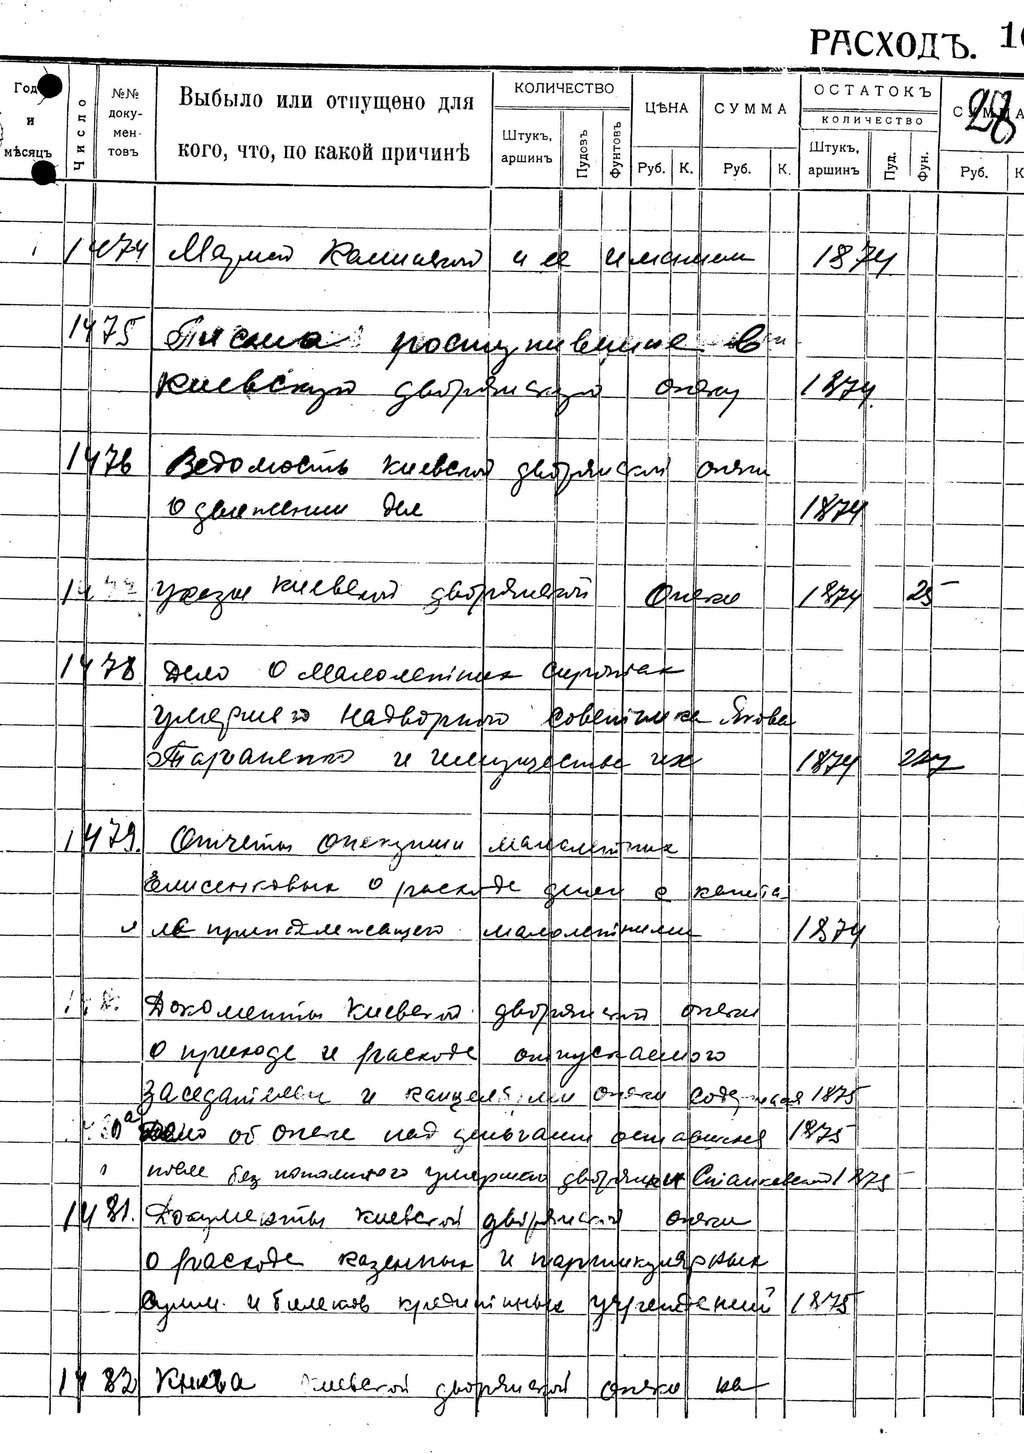 РАСХОДЪ. 10
Год и мѣсяцъ
Число
№№ документовъ
Выбыло или отпущено для кого, что, по какой причинѣ
КОЛИЧЕСТВО
Штукъ, аршинъ
Пудовъ
Фунтовъ
ЦѢНА
Руб. К.
СУММА
Руб. К.
ОСТАТОКЪ
КОЛИЧЕСТВО
Штукъ, аршинъ
Пуд.
Фун.
СУММА
Руб. К
28
1474 Каминской и ее имением 1874
1475 Писма поступившие в
киевскую дворянскую опеку 1874
1476 Ведомость киевской дворянской опеки
о движении дел 1874
14 указы киевской дворянской опеки 1874 25
1478 Дело о малолетних сиротах
умершего надворного советника Якова
и имуществе их 1874 227
1479. Отчеты опекунши малолетних
Елисенковых о расходе денег с капита
ла принадлежащего малолетними 1874
Документы киевской дворянской опеки
о приходе и расходе отпускаемого
заседателям и канцелярии опеки 1875
Дело об опеке над деньгами оставшимися 1875
после без потомного умершего дворянки Станкевской 1875
1481. Документы киевской дворянской опеки
о расходе казенных и партикулярных
сумм и билетов кредитных учреждений 1875
1482 Книга киевской дворянской опеки на